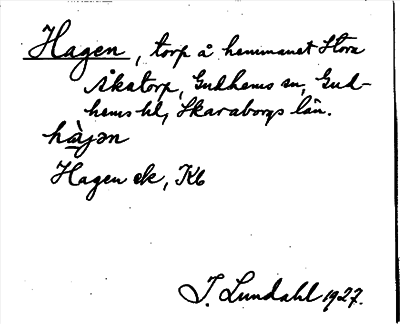 Hagen, torp å hemmanet Stora
Åkatorp, Gudhems sn, Gud-
hems hd, Skaraborgs län.
hàjən
Hagen ek, Kb
I. Lundahl 1927.